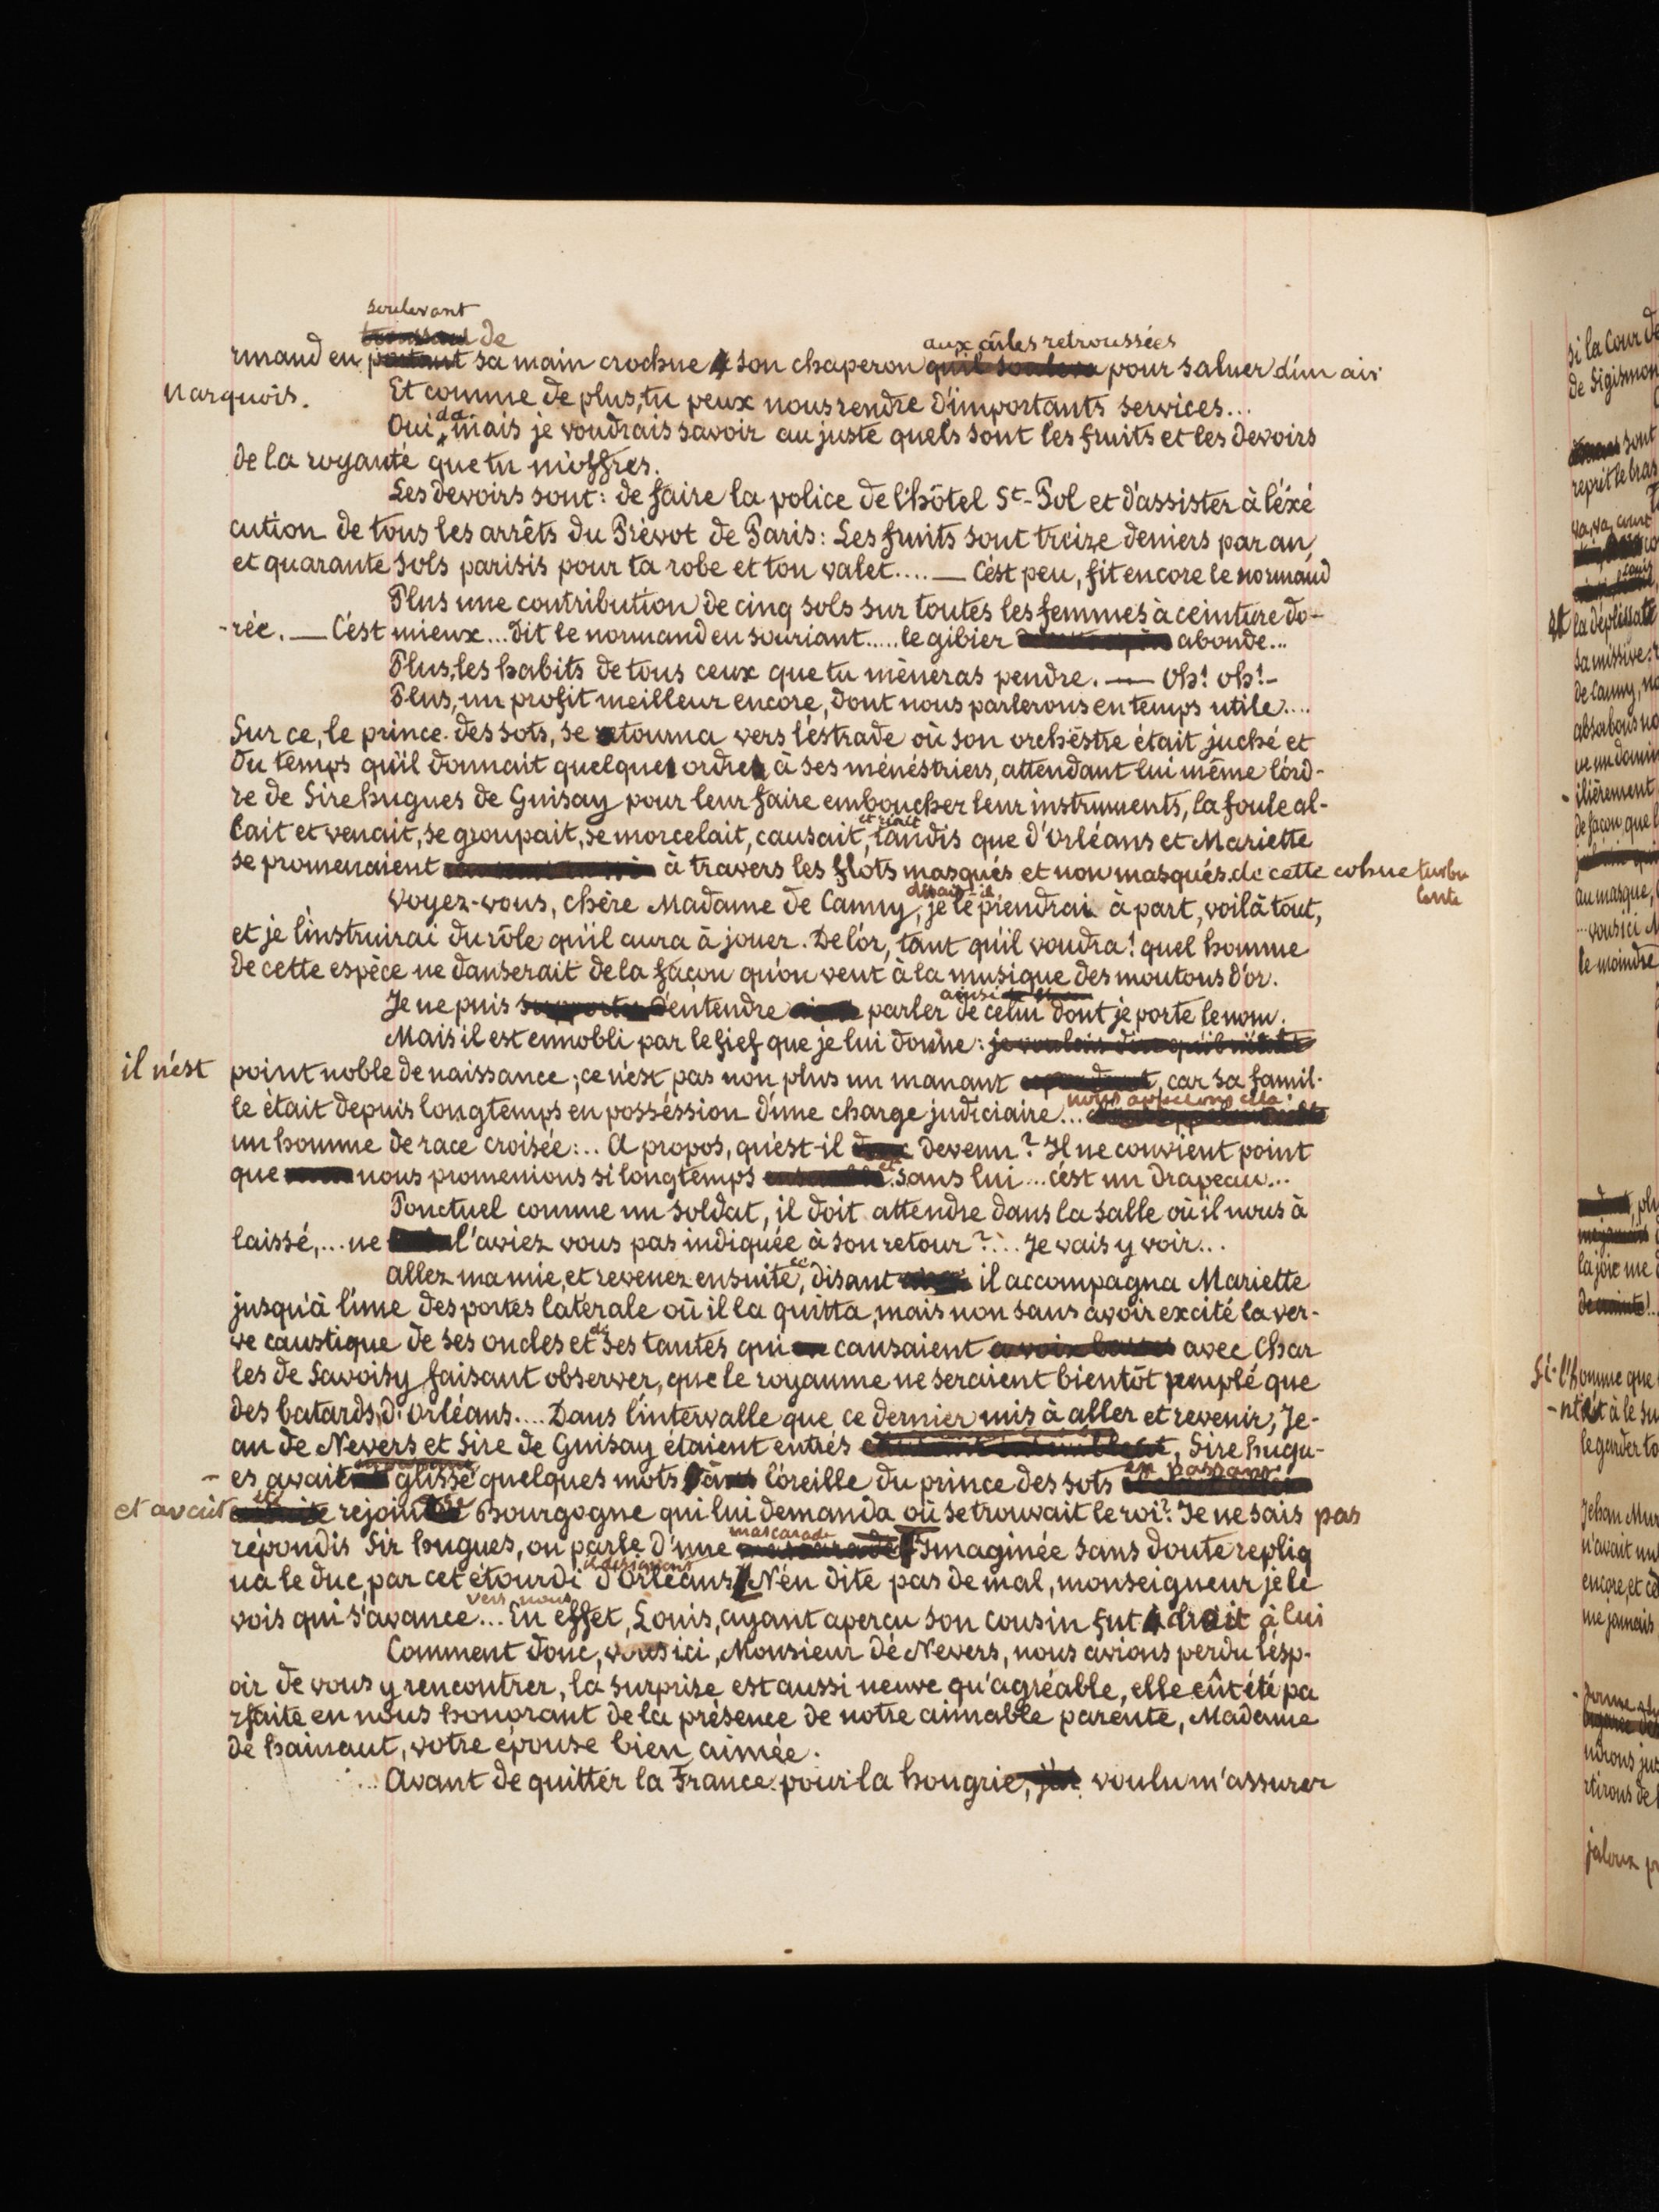 soulevant
de
aux ailes retroussées
rmand en sa main crochue son chaperon pour saluer d'un air
narquois.
Et comme de plus, tu peux nous rendre d'importants services...
da
Oui, mais je voudrais savoir au juste quels sont les fruits et les devoirs
de la royauté que tu m'offres.
Les devoirs sont: de faire la police de l'hôtel St-Pol et d'assister à l'éxé
cution de tous les arrêts du Prévot de Paris: Les fruits sont treize deniers par an
et quarante sols parisis pour ta robe et ton valet.... — C'ést peu, fit encore le normand
Plus une contribution de cinq sols sur toutes les femmes à ceinture do-
-rée. — C'est mieux... dit le normand en souriant..... le gibier abonde...
Plus, les habits de tous ceux que tu mèneras pendre. — Oh! oh!-
Plus, un profit meilleur encore, dont nous parlerons en temps utile....
Sur ce, le prince des sots, se retourna vers l'éstrade où son orchéstre était juché et
du temps qu'il donnait quelque ordre à ses ménéstriers, attendant lui même l'ord-
re de Sire hugues de Guisay pour leur faire emboucher leur instruments, la foule al-
et riait
lait et venait, se groupait, se morcelait, causait, tandis que d'Orléans et Mariette
se promenaient à travers les flots masqués et non masqués de cette cohue turbu
lente
disait-il
Voyez-vous, chère Madame de Canny, je le prendrai à part, voilà tout,
et je l'instruirai du rôle qu'il aura à jouer. De l'or, tant qu'il voudra! quel homme
de cette espèce ne danserait de la façon qu'on veut à la musique des moutons d'or.
ainsi
Je ne puis d'entendre parler de celui dont je porte le nom.
Mais il est ennobli par le fief que je lui donne: je voulais dire qu'il n'était
il n'ést point noble de naissance; ce n'ést pas non plus un manant, car sa famil-
nous appelons cela!
le était depuis longtemps en posséssion d'une charge judiciaire...
un homme de race croisée:.. A propos, qu'est-il devenu? Il ne convient point
et
que nous promenions si longtemps sans lui... c'ést un drapeau...
Ponctuel comme un soldat, il doit attendre dans la salle où il nous à
laissé,... ne l'aviez vous pas indiquée à son retour?... Je vais y voir...
Allez ma mie, et revenez ensuite, disant il accompagna Mariette
jusqu'à l'une des portes laterale où il la quitta, mais non sans avoir excité la ver-
de
ve caustique de ses oncles et ses tantes qui causaient a voix basses avec Char
les de Savoisy faisant observer, que le royaume ne seraient bientôt peuplé que
des batards d'Orléans.... Dans l'intervalle que ce dernier mis à aller et revenir, Je-
an de Nevers et Sire de Guisay étaient entrés, Sire hugu-
en passant
es avait glissé quelques mots à l'oreille du prince des sots
et avait rejoint Bourgogne qui lui demanda où se trouvait le roi? Je ne sais pas
mascarade
répondis Sir hugues, on parle d'une Imaginée sans doute repliq
ua le duc, par cet étourdi d'Orléans. N'en dite pas de mal, monseigneur je le
vers nous
vois qui s'avance... En effet, Louis, ayant aperçu son cousin fut droit à lui
Comment donc, vous ici, Monsieur de Nevers, nous avions perdu l'ésp-
oir de vous y rencontrer, la surprise est aussi neuve qu'agréable, elle eût été pa
rfaite en nous honorant de la présence de notre aimable parente, Madame
de hainaut, votre épouse bien aimée.
Avant de quitter la France pour la hongrie, voulu m'assurer
si la Cour de
de Sigismon
sont
reprit le bras
et la
sa missive:
de Canny,
-ilièrement
de façon que
au masque,
...vous ici M
le moindre
la joie me
l'homme que
à le
le garder
Jehan
n'avait
encore, et
me jamais
jaloux